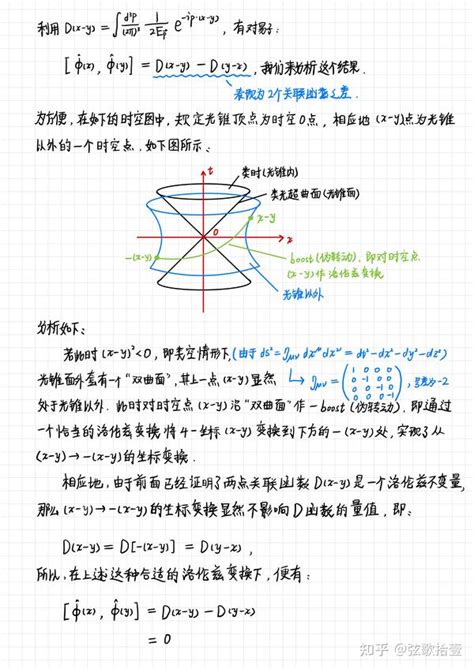 利用 D(x-y)=∫d³p/(2π)³ 1/2E_p e^{-ip·(x-y)}, 有对易子:
[ϕ̂(x), ϕ̂(y)] = D(x-y) - D(y-x), 我们来分析这个结果.
表现为2个关联函数之差.
为方便, 在如下的时空图中, 规定光锥顶点为时空0点, 相应地 (x-y)点为光锥
以外的一个时空点. 如下图所示:
t
类时(光锥内)
类光超曲面(光锥面)
x-y
0
x
-(x-y)
boost(伪转动), 即对时空点
(x-y)作洛伦兹变换
光锥以外
分析如下:
若此时 (x-y)²<0, 即类空情形下, (由于 ds²=η_μν dx^μ dx^ν = dt²-dx²-dy²-dz²)
光锥面外套有一个“双曲面”, 其上一点 (x-y) 显然
η_μν = (1 0 0 0
0 -1 0 0
0 0 -1 0
0 0 0 -1), 号差为-2
处于光锥以外. 此时对时空点 (x-y) 沿“双曲面”作一boost(伪转动), 即通过
一个恰当的洛伦兹变换将4-坐标 (x-y) 变换到下方的 -(x-y)处, 实现了从
(x-y)→-(x-y) 的坐标变换.
相应地, 由于前面已经证明了两点关联函数 D(x-y) 是一个洛伦兹不变量,
那么 (x-y)→-(x-y) 的坐标变换显然不影响D函数的量值, 即:
D(x-y) = D[-(x-y)] = D(y-x),
所以, 在上述这种合适的洛伦兹变换下, 便有:
[ϕ̂(x), ϕ̂(y)] = D(x-y) - D(y-x)
= 0
知乎 @弦歌拾壹